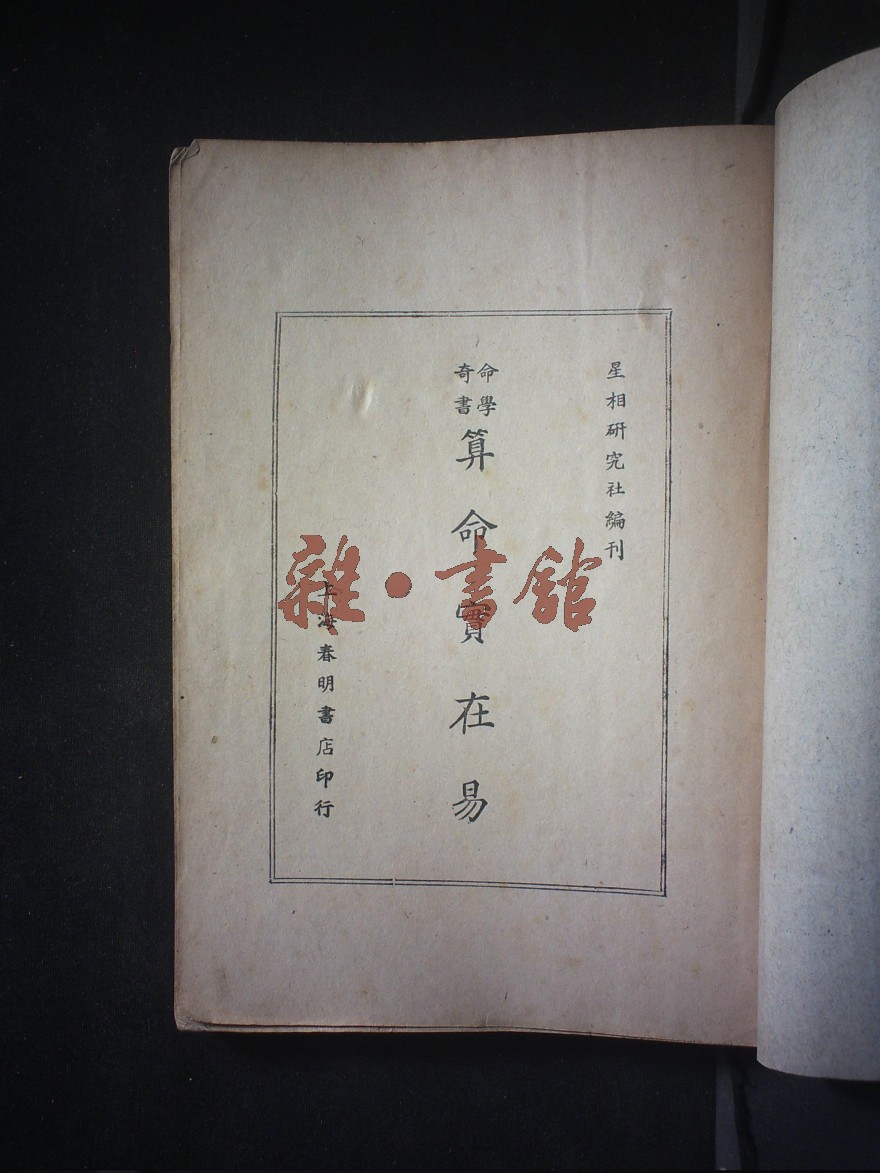 星相研究社編刊
命學
奇書
算命實在易
上海春明書店印行
雜·書館